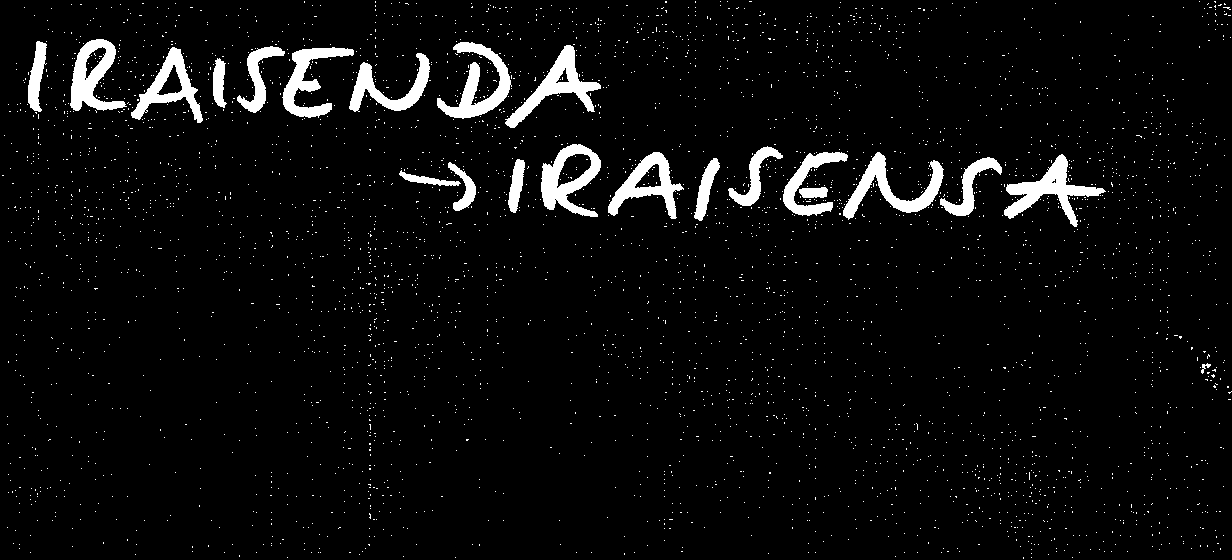 IRAISENDA
→ IRAISENSA